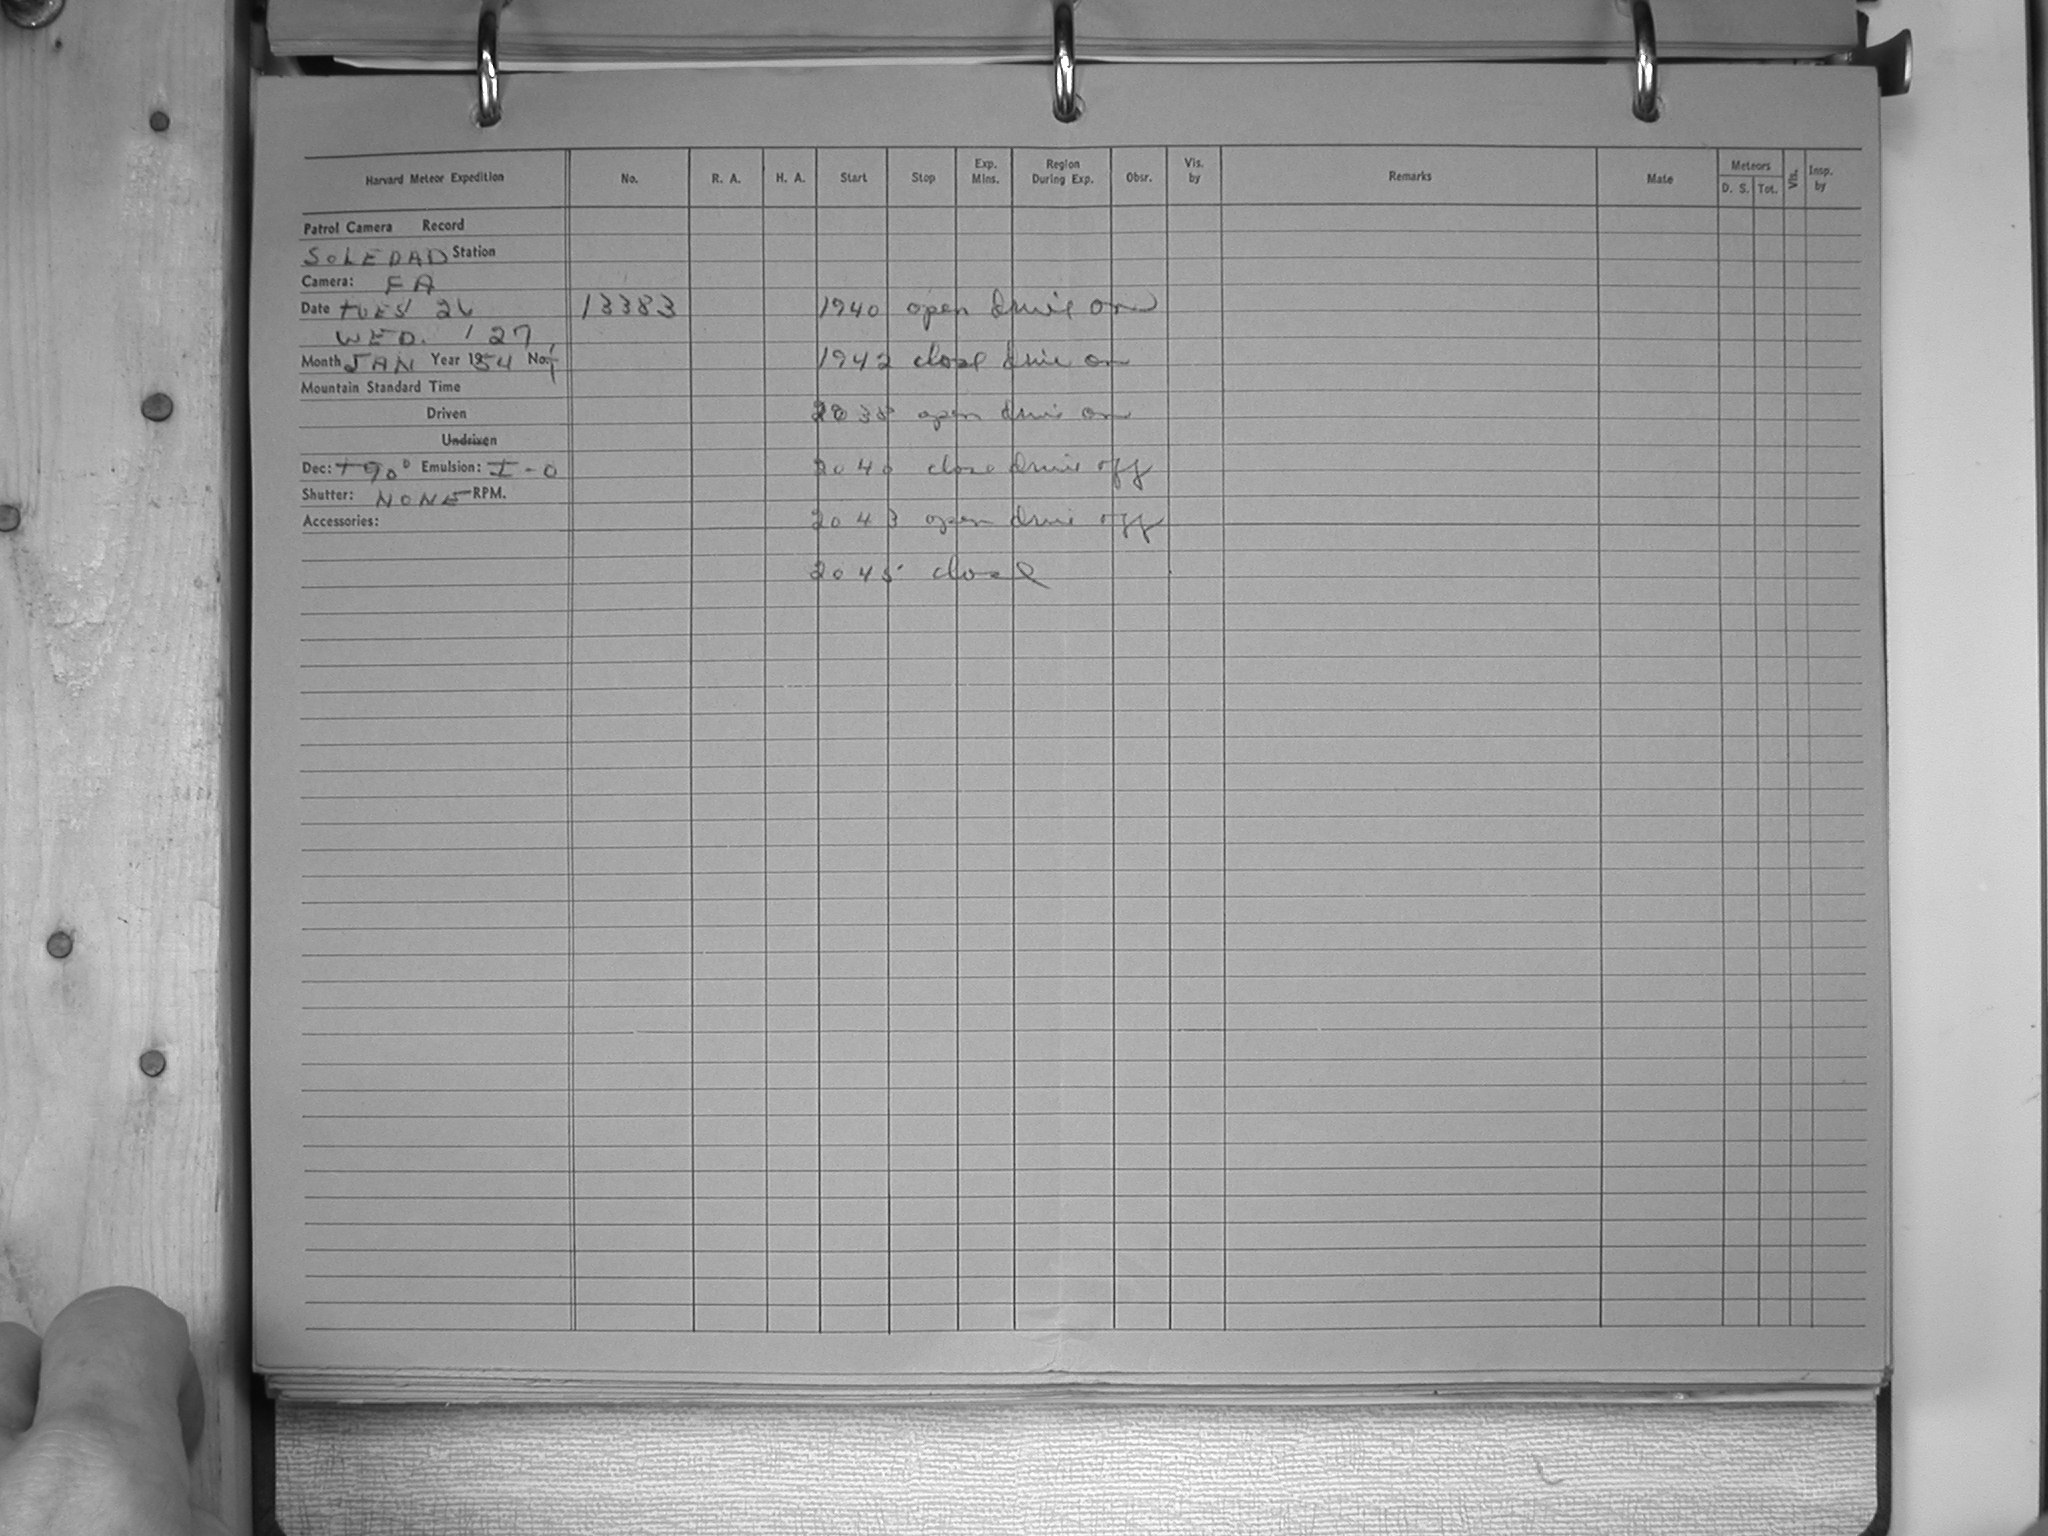 Harvard Meteor Expedition No. R. A. H. A. Start Stop Exp. Mins. Region During Exp. Obsr. Vis. by Remarks Mate Meteors D. S. Tot. Vis. Insp. by
Patrol Camera Record
SOLEDAD Station
Camera: FA
Date TUES 26 13383 1940 open drive on
WED. 27
Month JAN Year 1954 No. 1942 close drive on
Mountain Standard Time
Driven 2038 open drive on
Undriven
Dec: +90° Emulsion: I-O 2040 close drive off
Shutter: NONE RPM.
Accessories: 2043 open drive off
2045 close